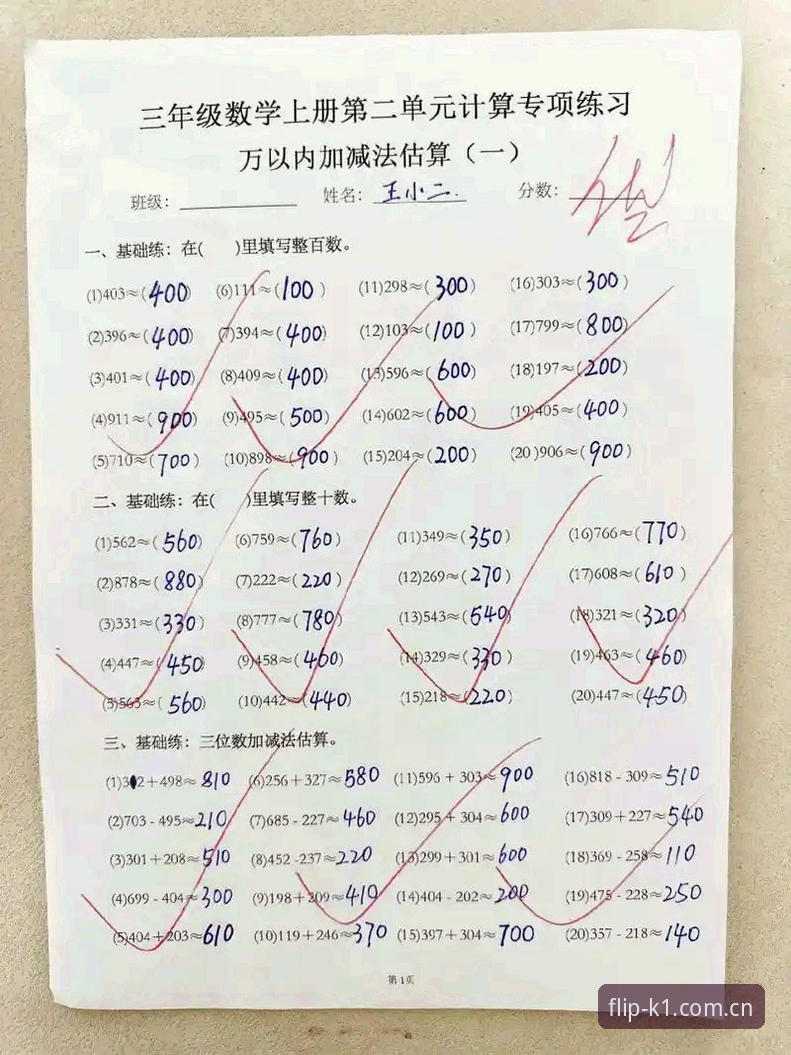 三年级数学上册第二单元计算专项练习
万以内加减法估算（一）
班级： 姓名：王小二. 分数：
一、基础练：在( )里填写整百数。
(1)403≈(400) (6)111≈(100) (11)298≈(300) (16)303≈(300)
(2)396≈(400) (7)394≈(400) (12)103≈(100) (17)799≈(800)
(3)401≈(400) (8)409≈(400) (13)596≈(600) (18)197≈(200)
(4)911≈(900) (9)495≈(500) (14)602≈(600) (19)405≈(400)
(5)710≈(700) (10)898≈(900) (15)204≈(200) (20)906≈(900)
二、基础练：在( )里填写整十数。
(1)562≈(560) (6)759≈(760) (11)349≈(350) (16)766≈(770)
(2)878≈(880) (7)222≈(220) (12)269≈(270) (17)608≈(610)
(3)331≈(330) (8)777≈(780) (13)543≈(540) (18)321≈(320)
(4)447≈(450) (9)458≈(460) (14)329≈(330) (19)463≈(460)
(5)563≈(560) (10)442≈(440) (15)218≈(220) (20)447≈(450)
三、基础练：三位数加减法估算。
(1)312+498≈810 (6)256+327≈580 (11)596+303≈900 (16)818-309≈510
(2)703-495≈210 (7)685-227≈460 (12)295+304≈600 (17)309+227≈540
(3)301+208≈510 (8)452-237≈220 (13)299+301≈600 (18)369-258≈110
(4)699-404≈300 (9)198+209≈410 (14)404-202≈200 (19)475-228≈250
(5)404+203≈610 (10)119+246≈370 (15)397+304≈700 (20)357-218≈140
第1页
flip-k1.com.cn